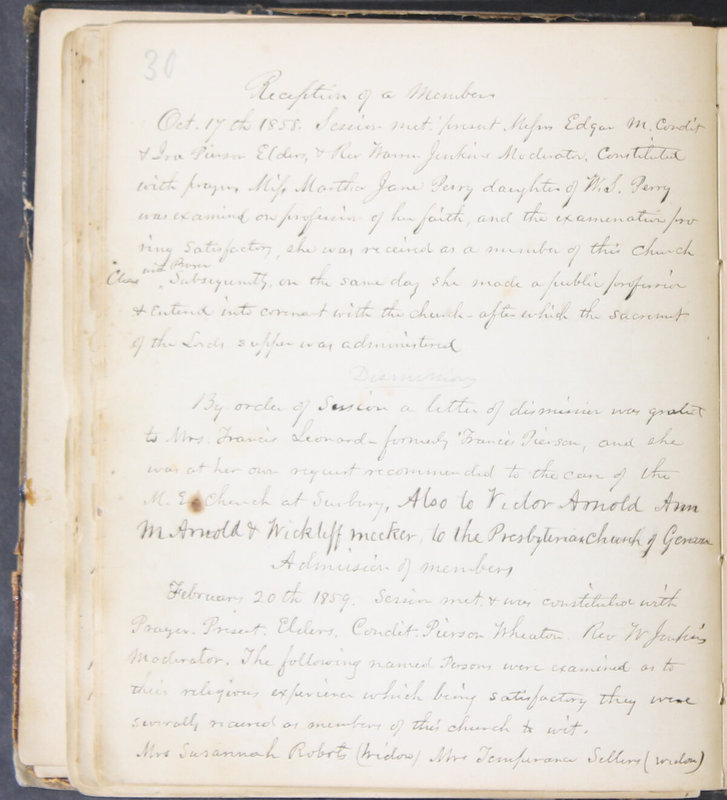 30
Reception of a Members
Oct. 17th 1858. Session met. present Messrs Edgar M. Condit
& Ira Pierson Elders, & Rev Warren Jenkins Moderator. Constituted
with prayer, Miss Martha Jane Perry daughter of W. S. Perry
was examined on profession of her faith, and the examination pro
ving satisfactory, she was received as a member of this church
Closed with Prayer
Subsequently, on the same day she made a public profession
& entered into covenant with the church - after which the sacrament
of the Lords supper was administered
Dismission
By order of Session a letter of dismission was granted
to Mrs. Francis Leonard - formerly Francis Pierson, and she
was at her own request recommended to the care of the
M. E. Church at Sunbury, Also to Victor Arnold Ann
M Arnold & Wickliff meeker, to the Presbyterian church of Geneva
Admission of members
February 20th 1859. Session met & was constituted with
Prayer. Present. Elders. Condit. Pierson Wheaton. Rev W Jenkins
Moderator. The following named Persons were examined as to
their religious experience which being satisfactory they were
severally received as members of this church to wit.
Mrs Susannah Roberts (Widow) Mrs Temperance Sellers (widow)